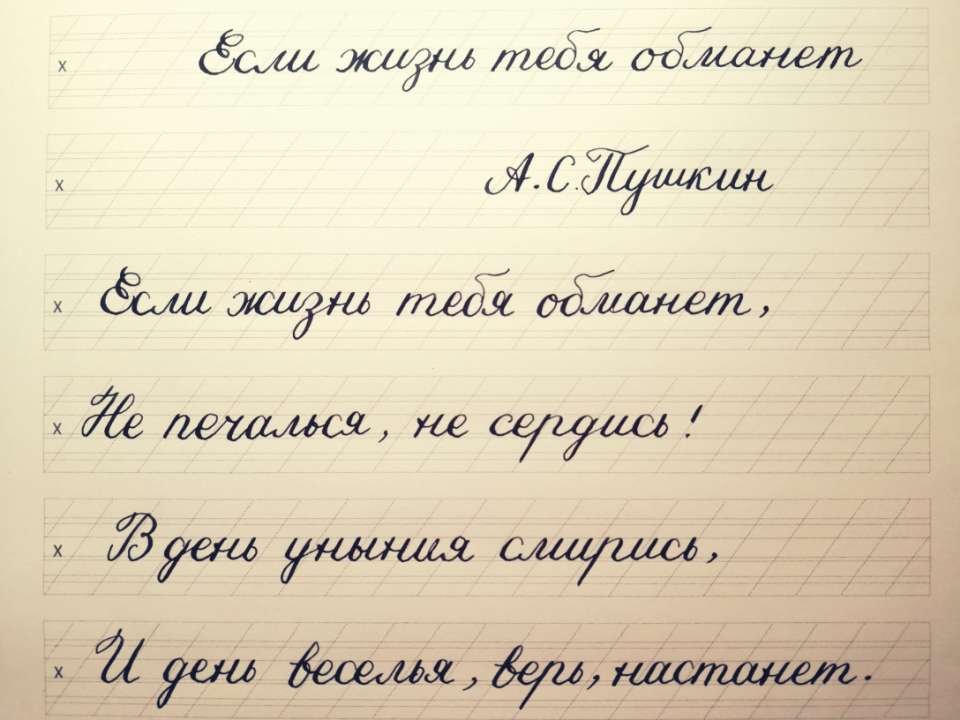 Если жизнь тебя обманет
А.С.Пушкин
x Если жизнь тебя обманет,
x Не печалься, не сердись!
x В день уныния смирись,
x И день веселья, верь, настанет.